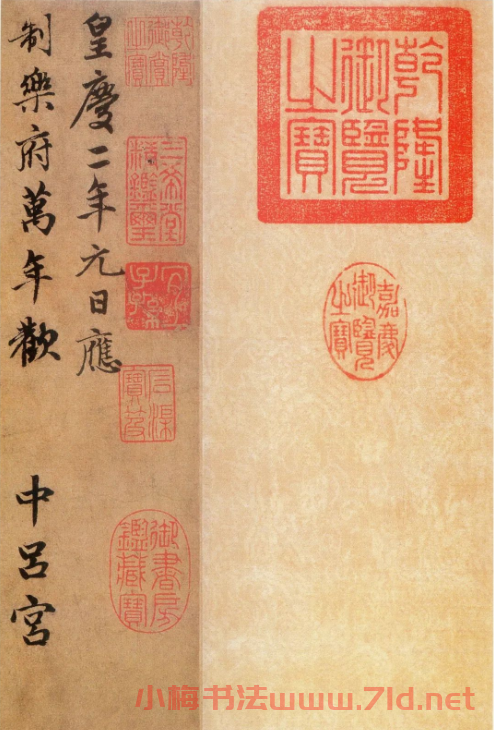 乾隆
御覽
之寶
嘉慶
御覽
之寶
三希堂
精鑑璽
宜
子孫
石渠
寶笈
御書房
鑑藏寶
皇慶二年元日應
制樂府萬年歡 中呂宮
小梅书法www.7ld.net